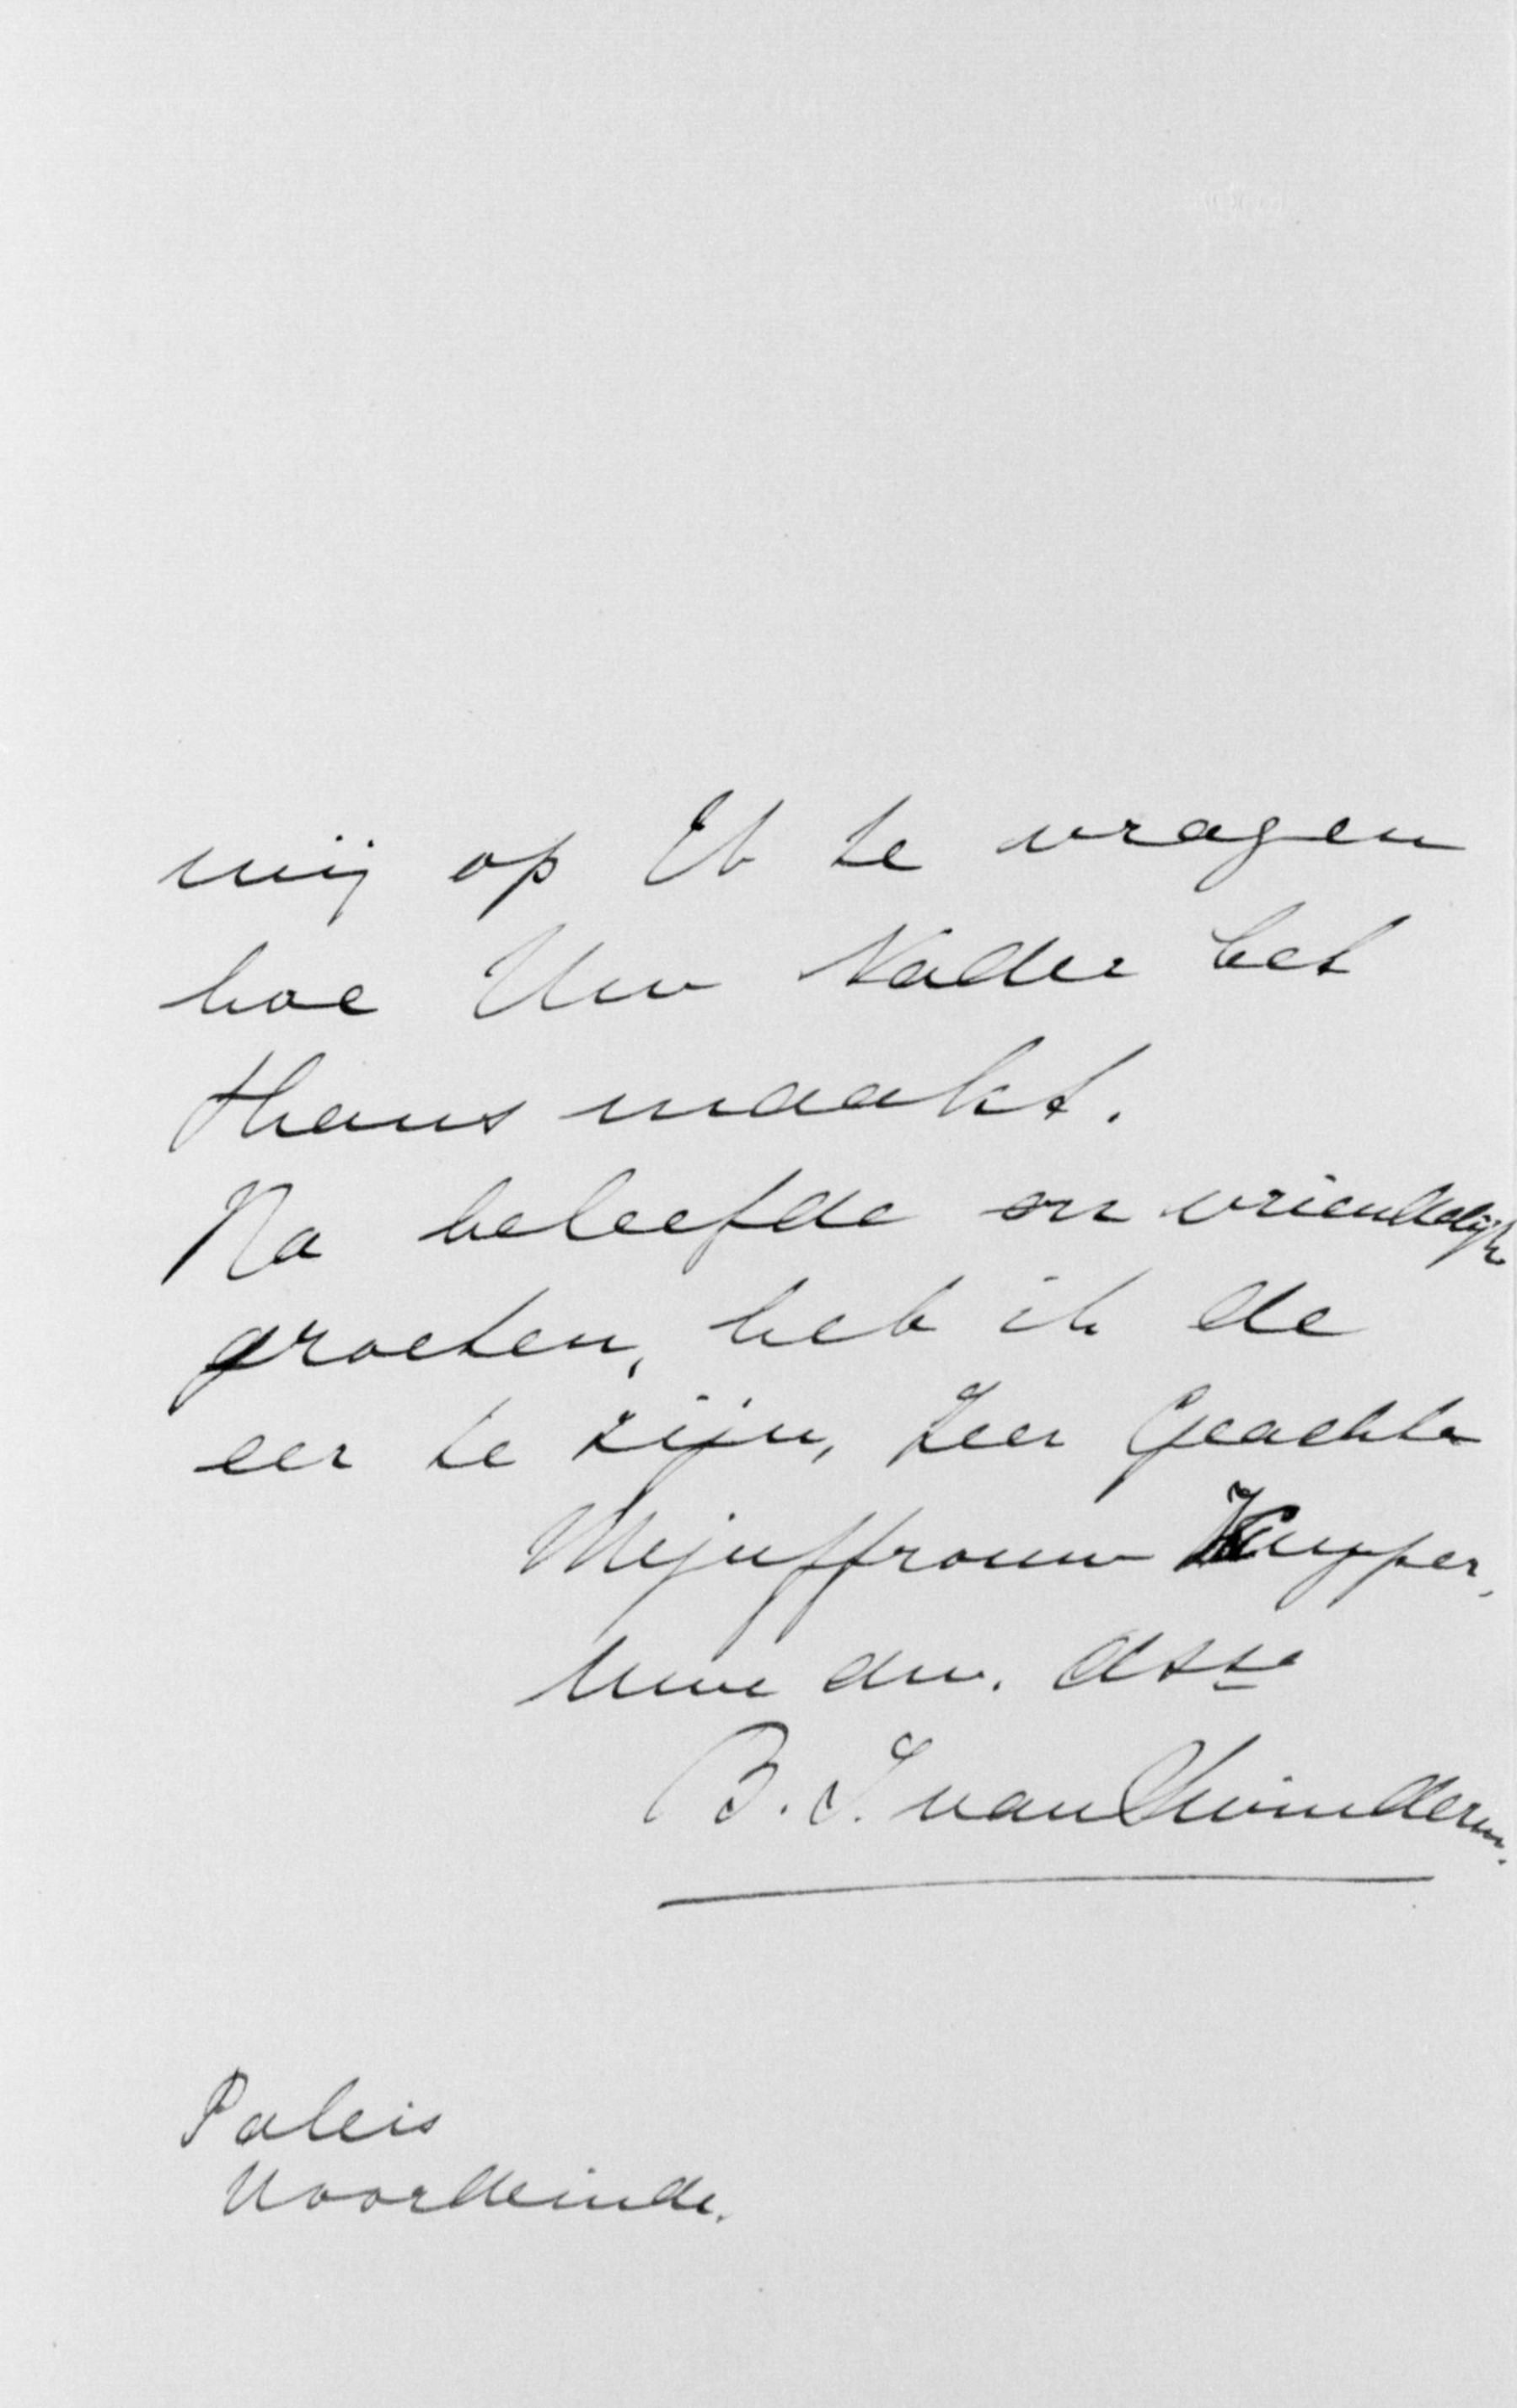 mij op U te vragen
hoe Uw Vader het
thans maakt.
Na beleefde en vriendelijk
groeten, heb ik de
eer te zijn, Zeer Geachte
Mejuffrouw Kuyper,
Uwe dw. 
B. J. van Swinderen.
Paleis
Noordeinde.